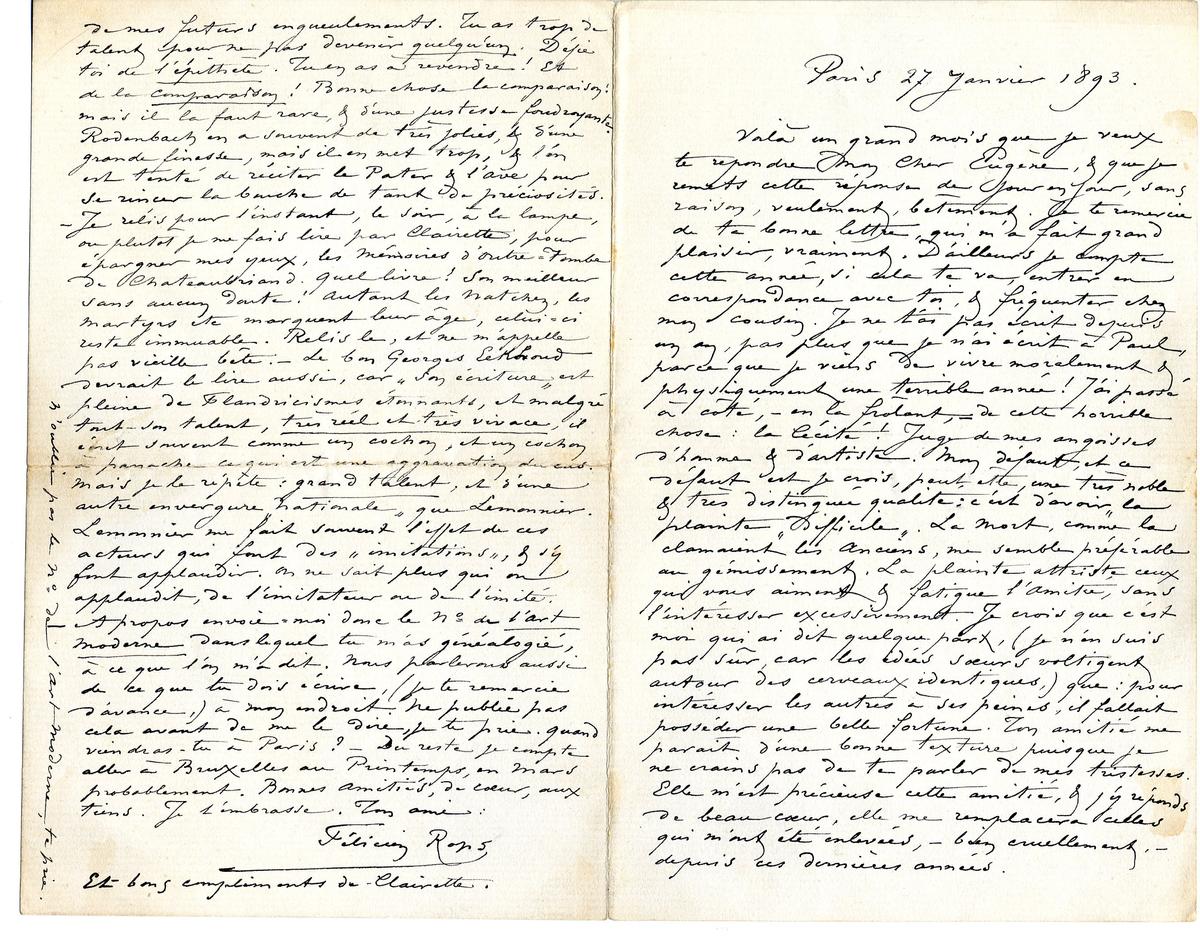 Paris 27 Janvier 1893.
Voilà un grand mois que je veux
te répondre Mon Cher Eugène, & que je
remets cette réponse de jour en jour, sans
raison, veulement, bêtement. Je te remercie
de ta bonne lettre, qui m'a fait grand
plaisir, vraiment. D'ailleurs je compte
cette année, si cela te va, entrer en
correspondance avec toi, & fréquenter chez
mon cousin. Je ne t'ai pas écrit depuis
un an, pas plus que je n'ai écrit à Paul,
parce que je viens de vivre moralement &
physiquement une terrible année ! J'ai passé
à côté, – en la frolant, – de cette horrible
chose : la Cécité ! Juge de mes angoisses
d'homme & d'artiste. Mon défaut, et ce
défaut est je crois, peut-être, une très noble
& très distinguée qualité : c'est d'avoir „la
plainte „Difficile„. La Mort, comme la
clamaient les Anciens, me semble préférable
au gémissement. La plainte attriste ceux
qui vous aiment & fatigue l'Amitié, sans
l'intéresser excessivement. Je crois que c'est
moi qui ai dit quelque part, (je n'en suis
pas sûr, car les idées sœurs voltigent
autour des cerveaux identiques,) que : pour
intéresser les autres à ses peines, il fallait
posséder une belle fortune. Ton amitié me
parait d'une bonne texture puisque je
ne crains pas de te parler de mes tristesses.
Elle m'est précieuse cette amitié, & j'y réponds
de beau cœur, elle me remplacera celles
qui m'ont été enlevées, – bien cruellement, –
depuis ces dernières années.
de mes futurs engueulements. Tu as trop de
talent pour ne pas devenir quelqu'un. Défie
toi de l'épithète. Tu en as à revendre ! Et
de la comparaison ! Bonne chose la comparaison !
mais il la faut rare, & d'une justesse foudroyante.
Rodenbach en a souvent de très jolies, & d'une
grande finesse, mais il en met trop, & l'on
est tenté de réciter le Pater & l'ave pour
se rincer la bouche de tant de préciosités.
– Je relis pour l'instant, le soir, à la lampe,
ou plutôt je me fais lire par Clairette, pour
épargner mes yeux, les Mémoires d'outre-Tombe
de Chateaubriand. Quel livre ! Son meilleur
sans aucun doute ! Autant les Natchez, les
martyrs etc marquent leur âge, celui-ci
reste immuable. Relis le, et ne m'appelle
pas vieille bête. – Le bon Georges Eekhoud
devrait le lire aussi, car „Son écriture„ est
pleine de Flandricismes étonnants, et malgré
tout son talent, très réel et très vivace, il
écrit souvent comme un cochon, et un cochon
à panache ce qui est une aggravation du cas.
Mais je le répète : grand talent, et d'une
autre envergure „nationale„ que Lemonnier.
Lemonnier me fait souvent l'effet de ces
acteurs qui font des „imitations„, & s'y
font applaudir. On ne sait plus qui on
applaudit, de l'imitateur ou de l'imité.
A propos envoie-moi donc le N° de l'Art
Moderne dans lequel tu m'as généalogié,
à ce que l'on m'a dit. Nous parlerons aussi
de ce que tu dois écrire, (je te remercie
d'avance,) à mon endroit. Ne publie pas
cela avant de me le dire, je te prie. Quand
viendras-tu à Paris ? – Du reste je compte
aller à Bruxelles au Printemps, en Mars
probablement. Bonnes amitiés, de cœur, aux
tiens. Je t'embrasse. Ton ami :
Félicien Rops
Et bons compliments de Clairette.
N'oublie pas le N° de l'art Moderne, te prie.